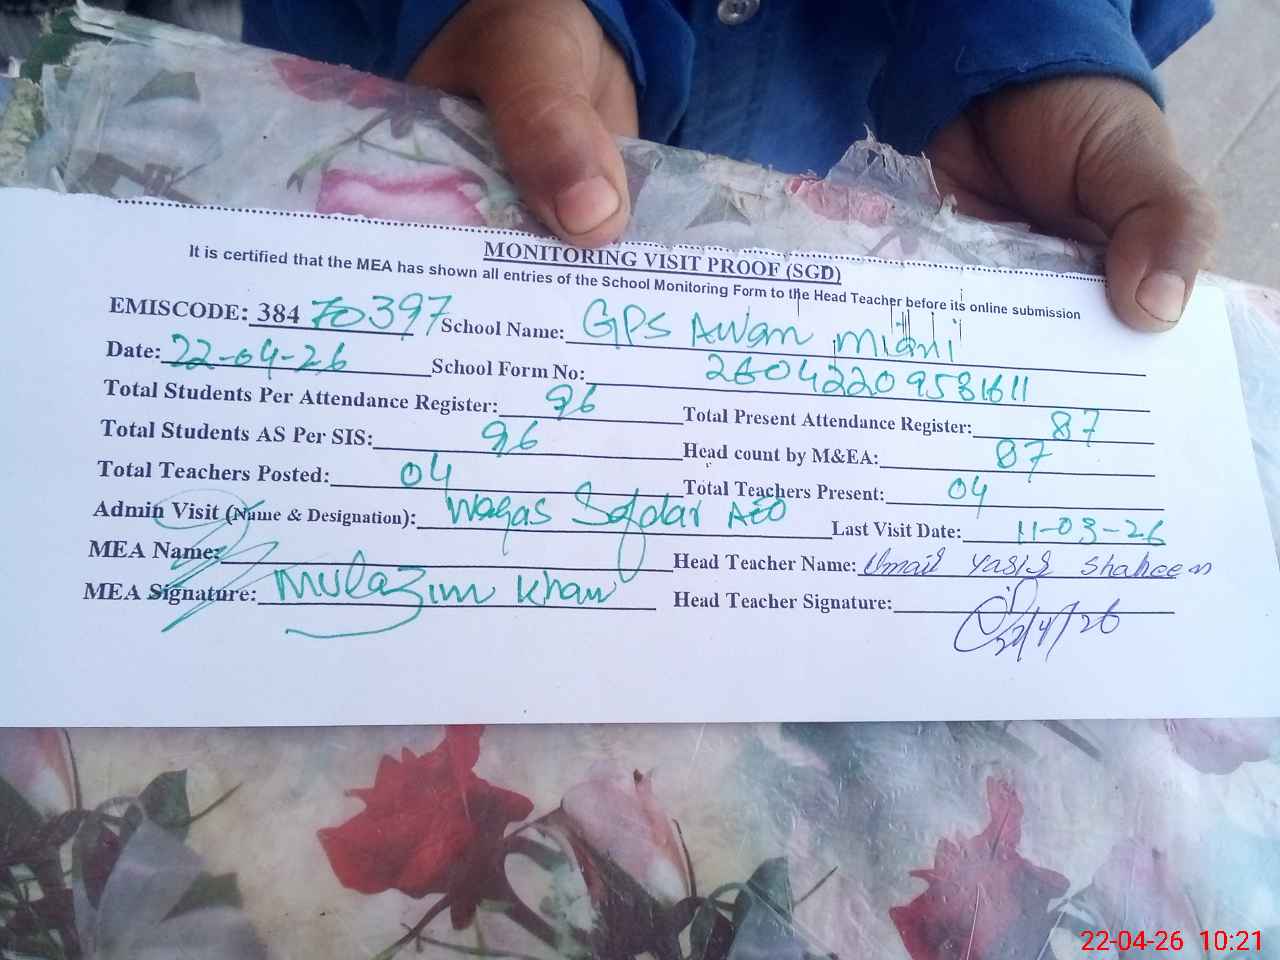 MONITORING VISIT PROOF (SGD)
It is certified that the MEA has shown all entries of the School Monitoring Form to the Head Teacher before its online submission
EMISCODE: 384 70397 School Name: GPS Awan Miani
Date: 22-04-26 School Form No: 26042209531611
Total Students Per Attendance Register: 96 Total Present Attendance Register: 87
Total Students AS Per SIS: 96 Head count by M&EA: 87
Total Teachers Posted: 04 Total Teachers Present: 04
Admin Visit (Name & Designation): Waqas Safdar AEO Last Visit Date: 11-03-26
MEA Name: Head Teacher Name: Umair Yasir Shaheen
MEA Signature: Mulazim Khan Head Teacher Signature:
22/4/26
22-04-26 10:21